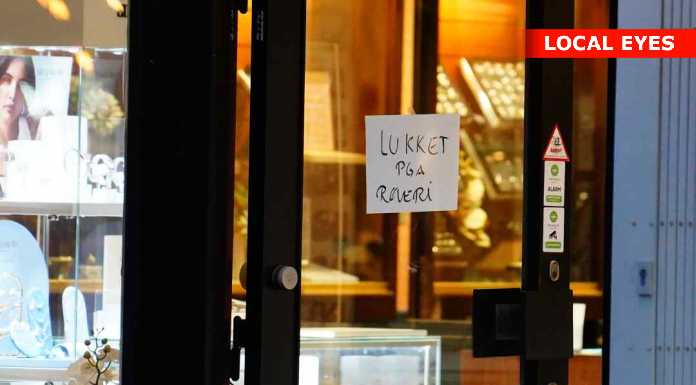 LOCAL EYES
LUKKET
PGA
RØVERI
ALARM